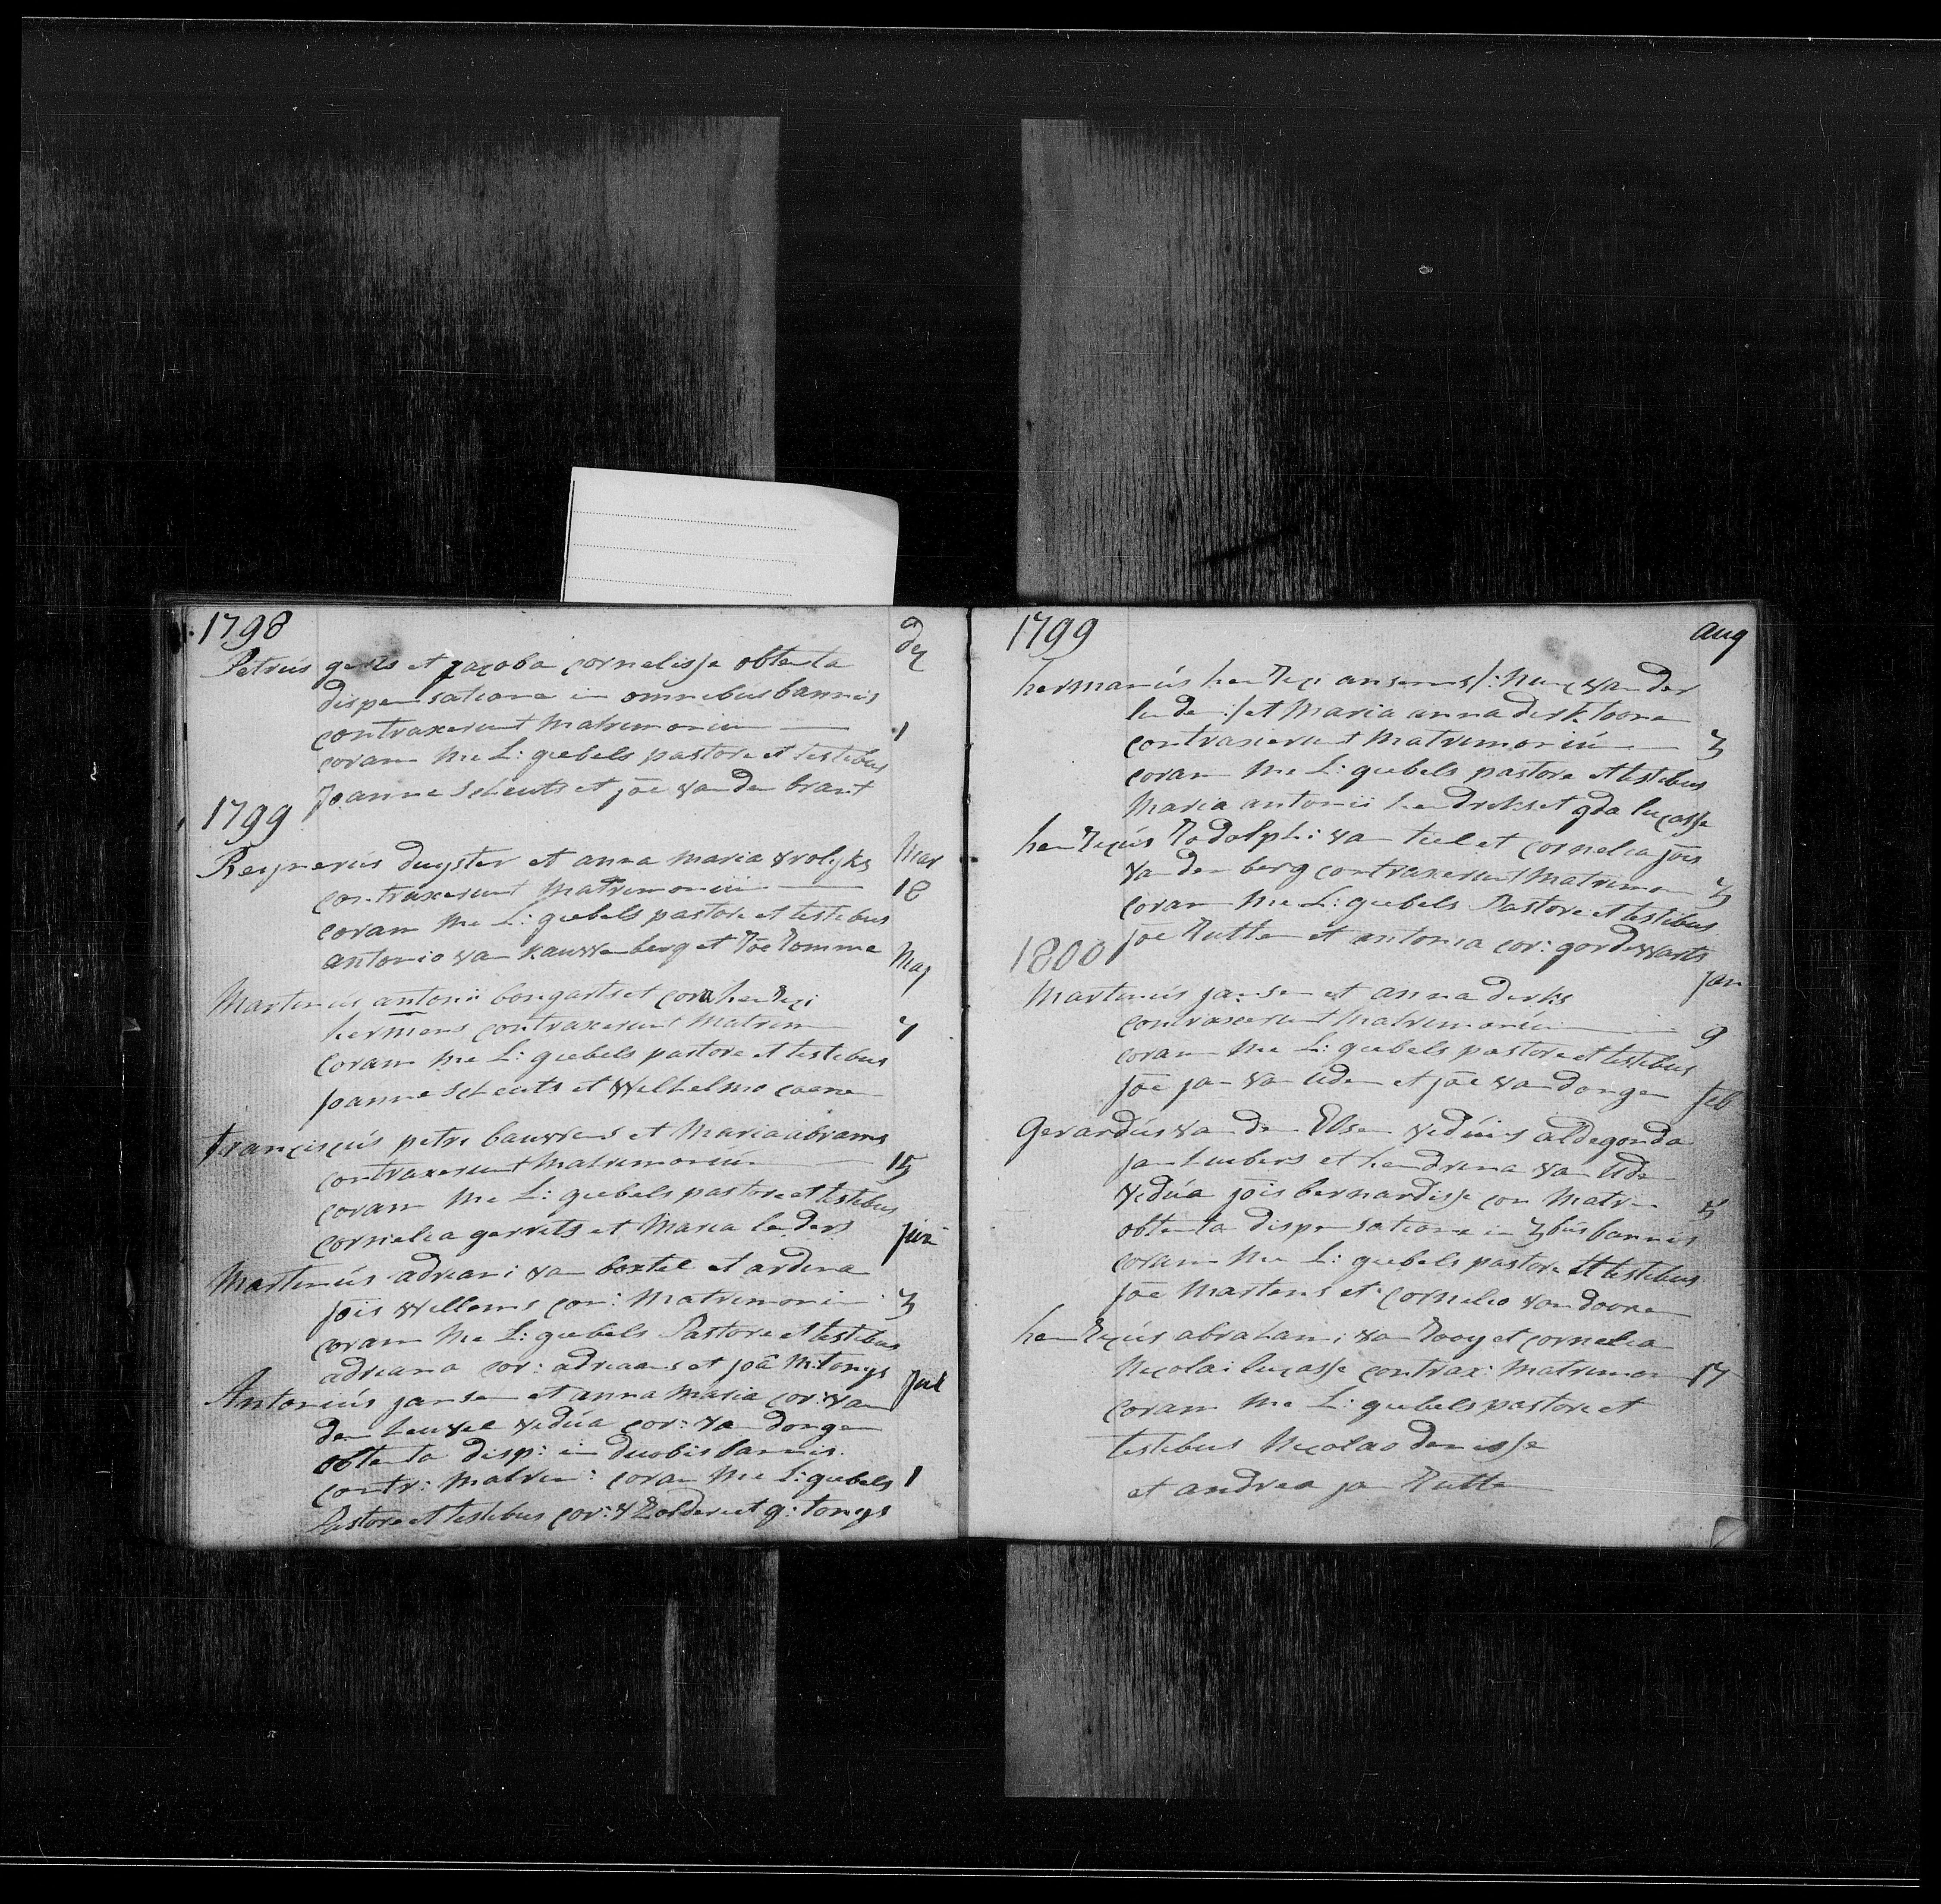 1798 dec
Petrus gerits et jacoba cornelisse obtenta
dispensatione in omnibus bannis
contraxerunt Matrimonium 1
coram Me L: giebels pastore et testibus
Joanne Scheuts et joe van den brant
1799
Reynerus duyster et anna maria vrolyks Mar
contraxerunt Matrimonium 18
coram Me L: giebels pastore et testibus
antonio van kauwenberg et Joe Romme May
Martinus antonii bongarts et corn henrici
hermens contraxerunt Matrim 7
Coram Me L: giebels pastore et testibus
Joanne Scheuts et Wilhelmo coene
franciscus petri bauwens et Maria abrams
contraxerunt Matrimonium 15
coram Me L: giebels pastore et testibus
Cornelia gerrits et Maria lenders Jun
Martinus adriani van boxtel et ardina
jois Willems con: Matrimonium 3
coram Me L: giebels Pastore et testibus
adriana cor: adriaans et joā M. tonys Jul
Antonius jansen et anna Maria cor: van
den heuvel vidua cor: van dongen
obtenta disp: in duobis bannis.
contr: Matrim: coram Me L: giebels 1
Pastore et testibus cor: v Zolder et g: tonys
1799 aug
hermanus henrici ansems /: nunc van der
linde :/ et Maria anna derk toone
contraxerunt Matrimoniū 3
coram Me L: giebels pastore et testibus
Maria antonii hendriks et gda lucasse
henricus Rodolphi van tiel et cornelia jois
van den berg contraxerunt Matrimon 3
coram Me L: giebels Pastore et testibus
joe Rutten et antonia cor: gordewarts
1800 jan
Martinus jansen et anna derks
contraxerunt Matrimonium 9
coram Me L: giebels pastore et testibus
Joe jan van uden et joe van dongen feb
Gerardus van den Elsen viduus aldegonda
jan luebers et hendrina van Uden
vidua jois bernardisse con Matrim 5
obtenta dispensatione in 3bus bannis
coram Me L: giebels pastore et testibus
joe Martens et cornelio van dooren
henricus abrahami van Rooy et cornelia
Nicolai lucasse contrax: Matrimon 17
coram Me L: giebels pastore et
testibus Nicolao denisse
et andrea jan Rutten